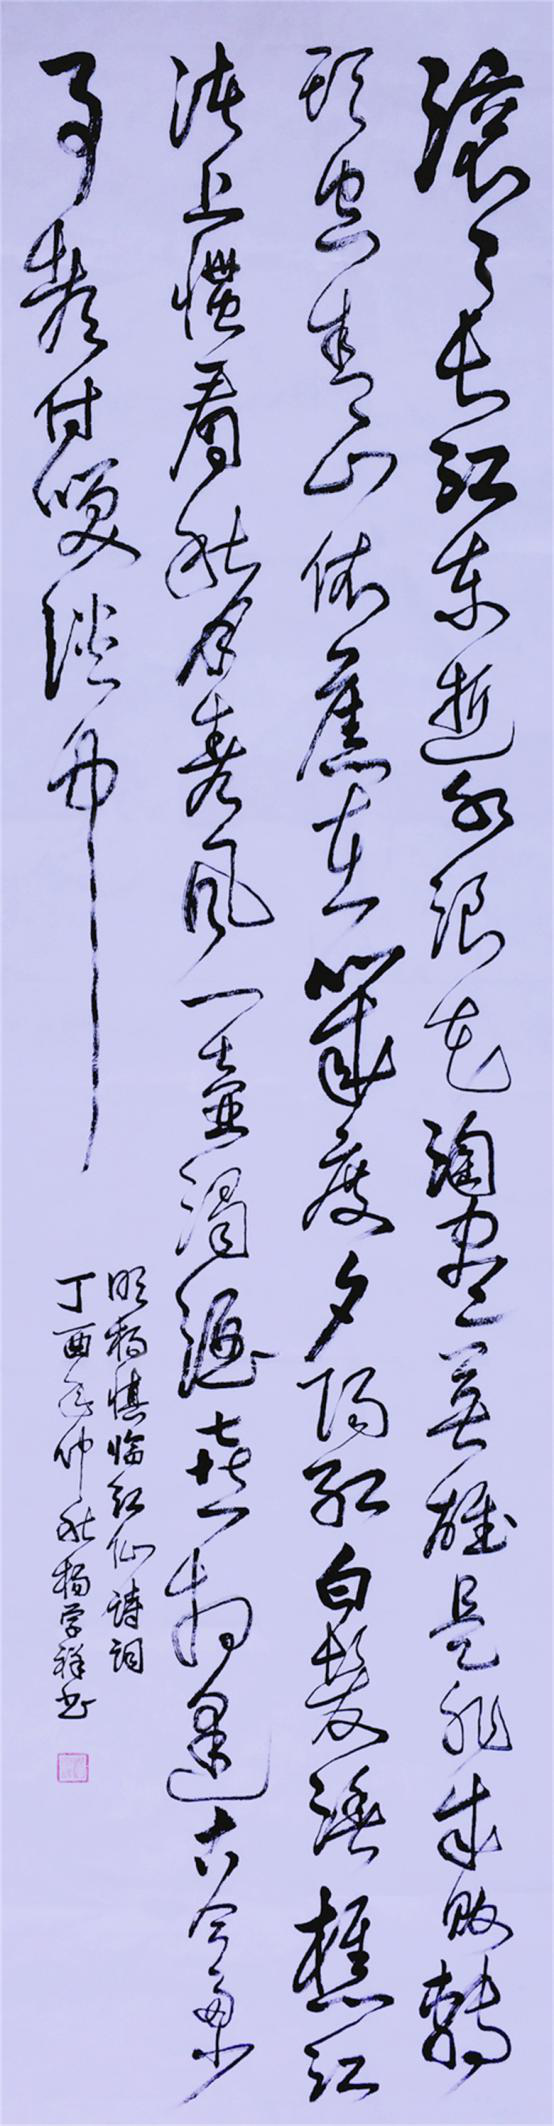 滚々长江东逝水浪花淘尽英雄是非成败轉
头空青山依舊在幾度夕阳红白髮渔樵江
渚上惯看秋月春风一壶浊酒喜相逢古今多少
事都付笑谈中
明杨慎临江仙诗词
丁酉年仲秋杨学祥书